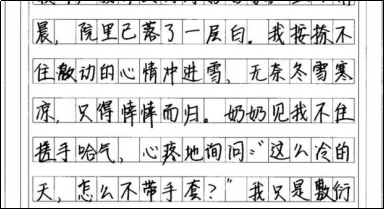 晨，院里已落了一层白。我按捺不
住激动的心情冲进雪，无奈冬雪寒
凉，只得悻悻而归。奶奶见我不住
搓手哈气，心疼地询问："这么冷的
天，怎么不带手套？"我只是敷衍